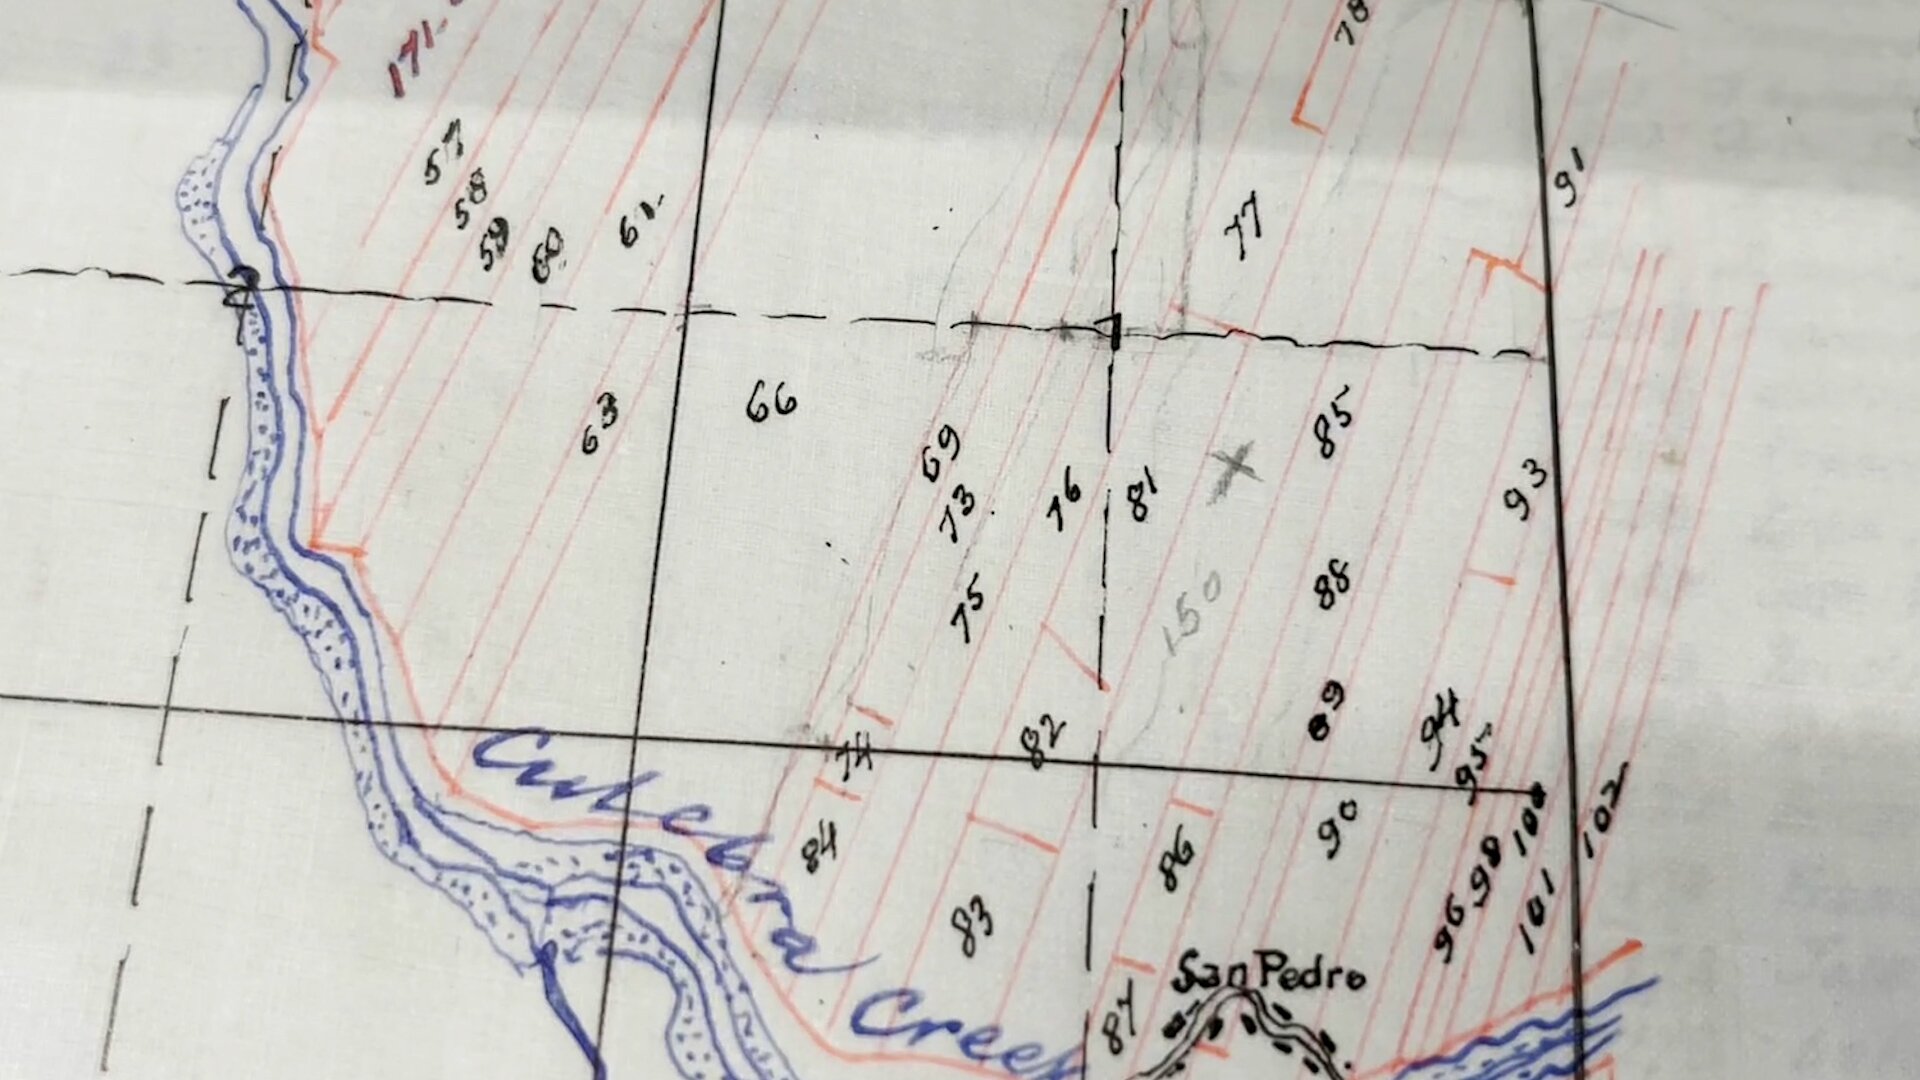 78
57
58
59
60
61
77
91
63
66
69
73
75
76
81
85
93
150
88
89
82
74
94
95
Culebra
Creek
84
83
86
90
96
98
100
101
102
87
San Pedro